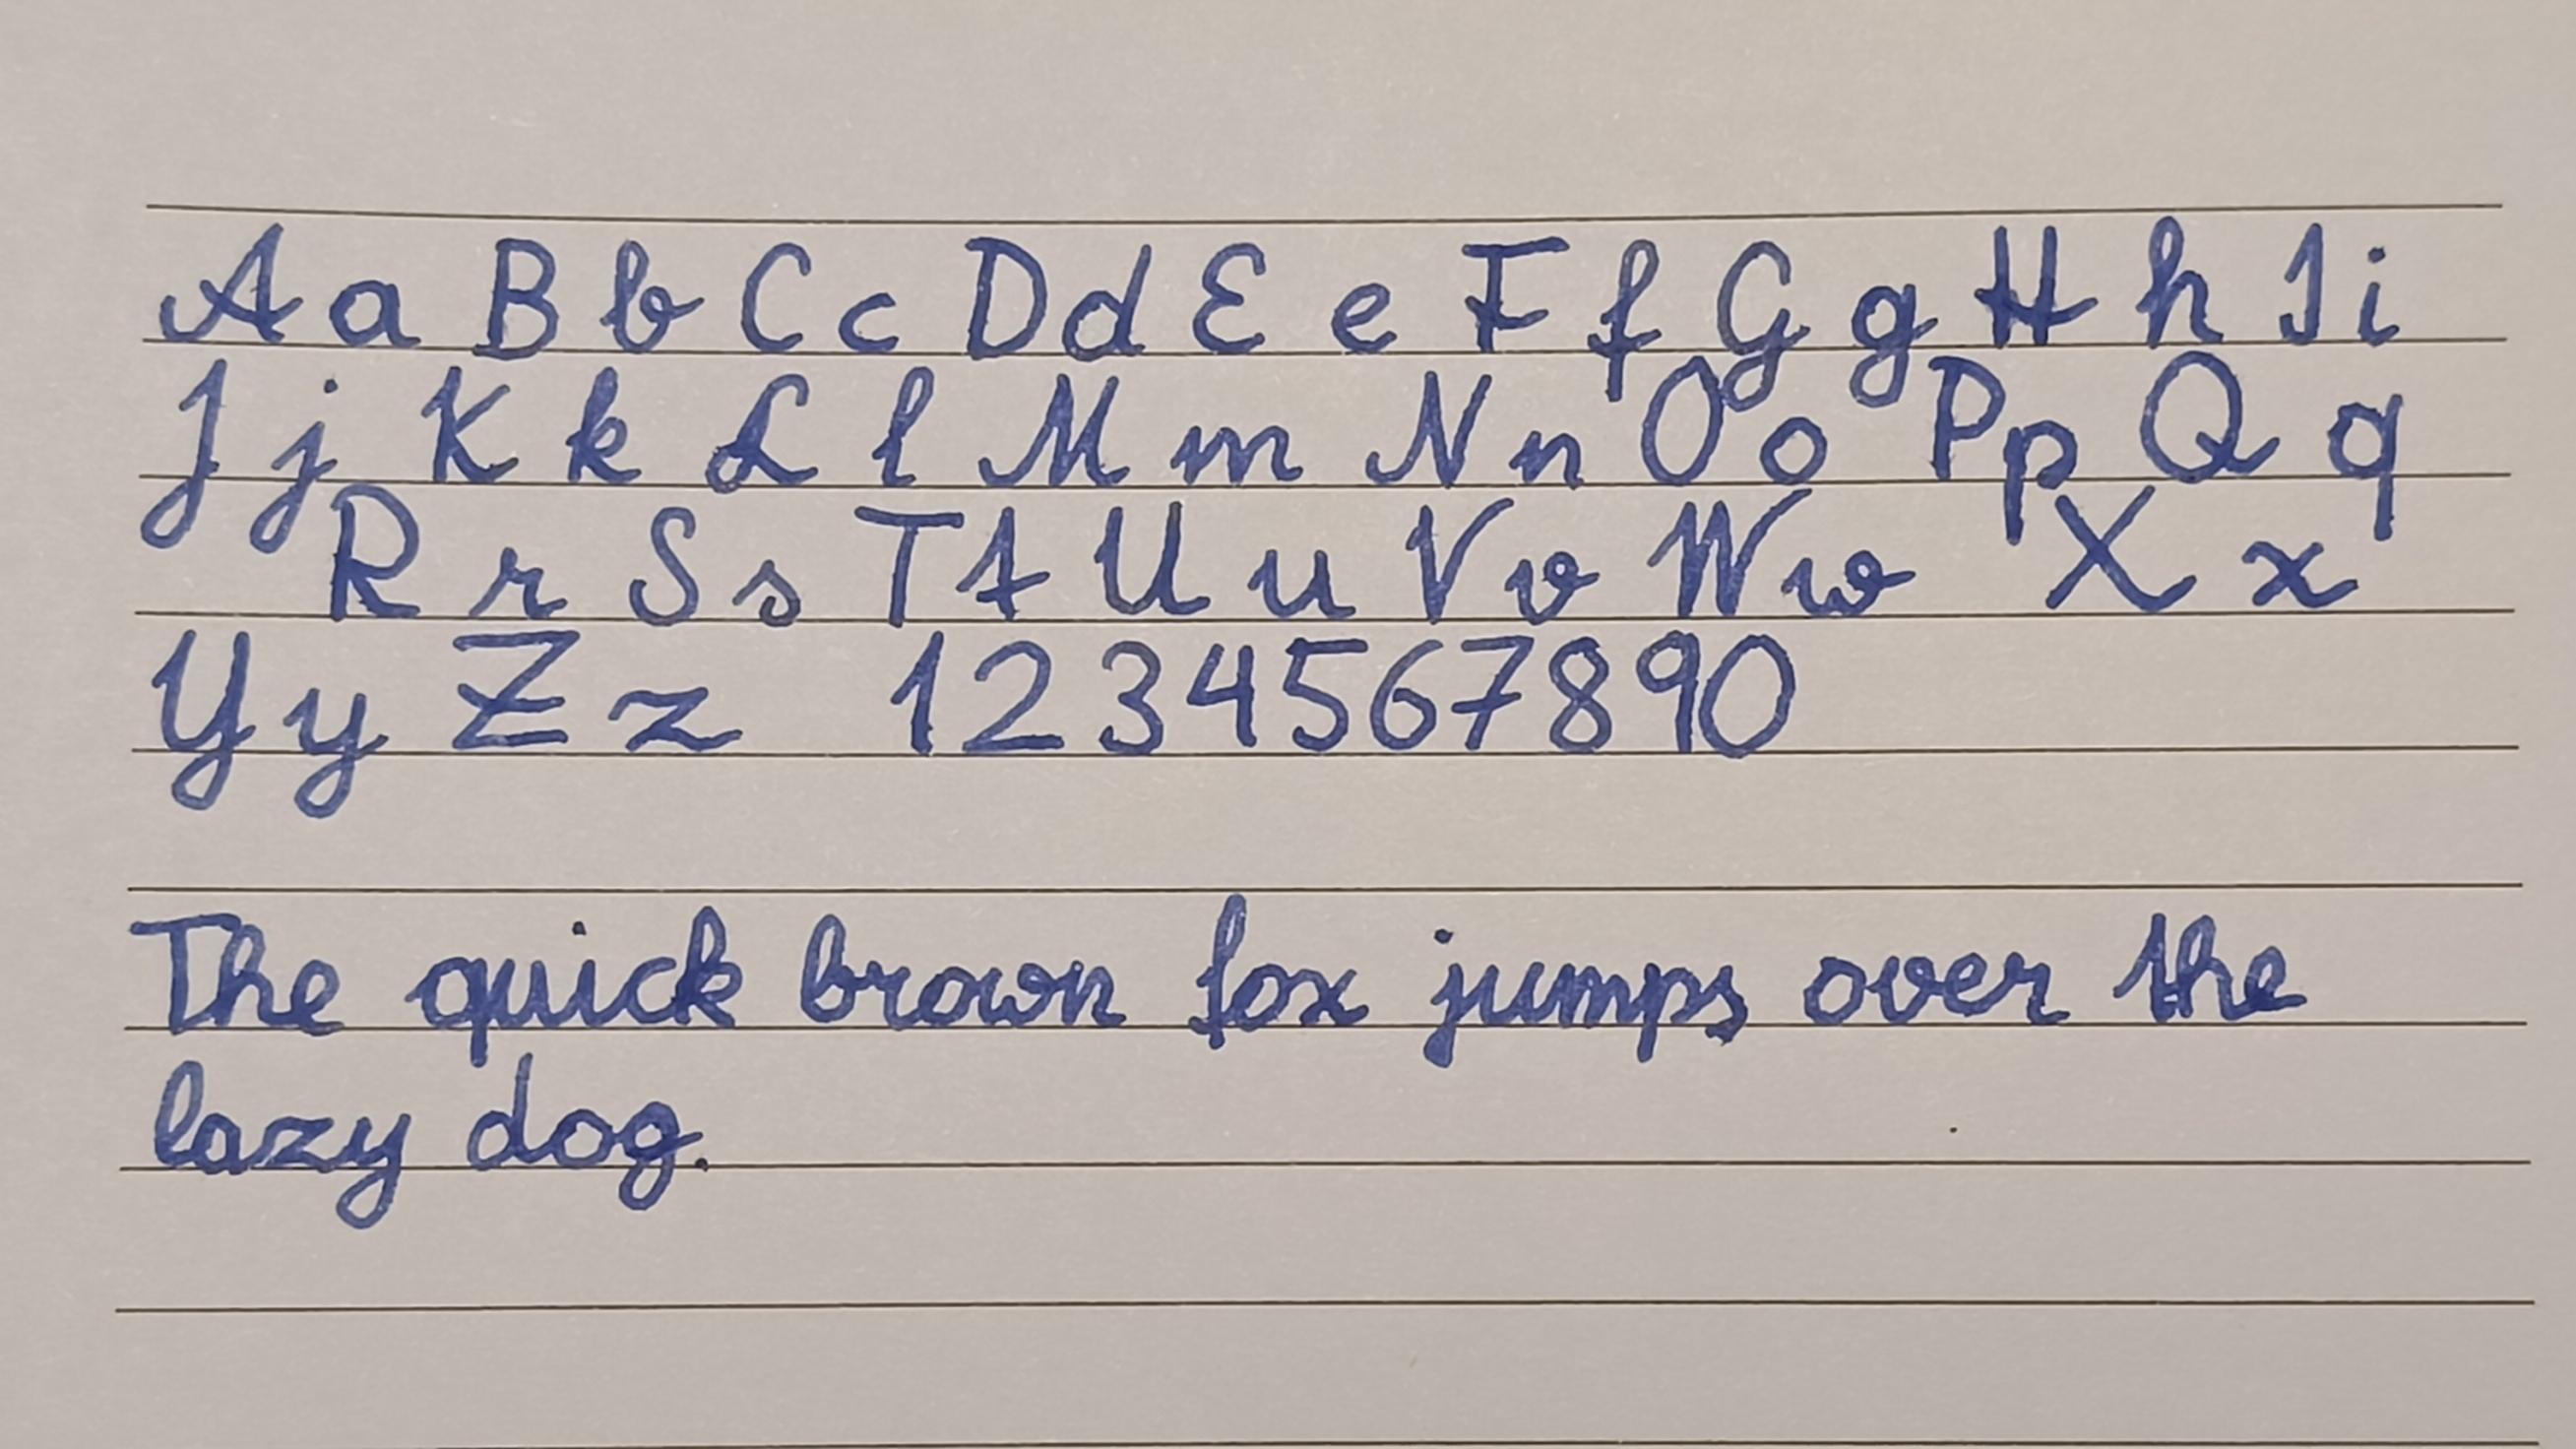 A a B b C c D d E e F f G g H h I i
J j K k L l M m N n O o P p Q q
R r S s T t U u V v W w X x
Y y Z z 1 2 3 4 5 6 7 8 9 0
The quick brown fox jumps over the
lazy dog.